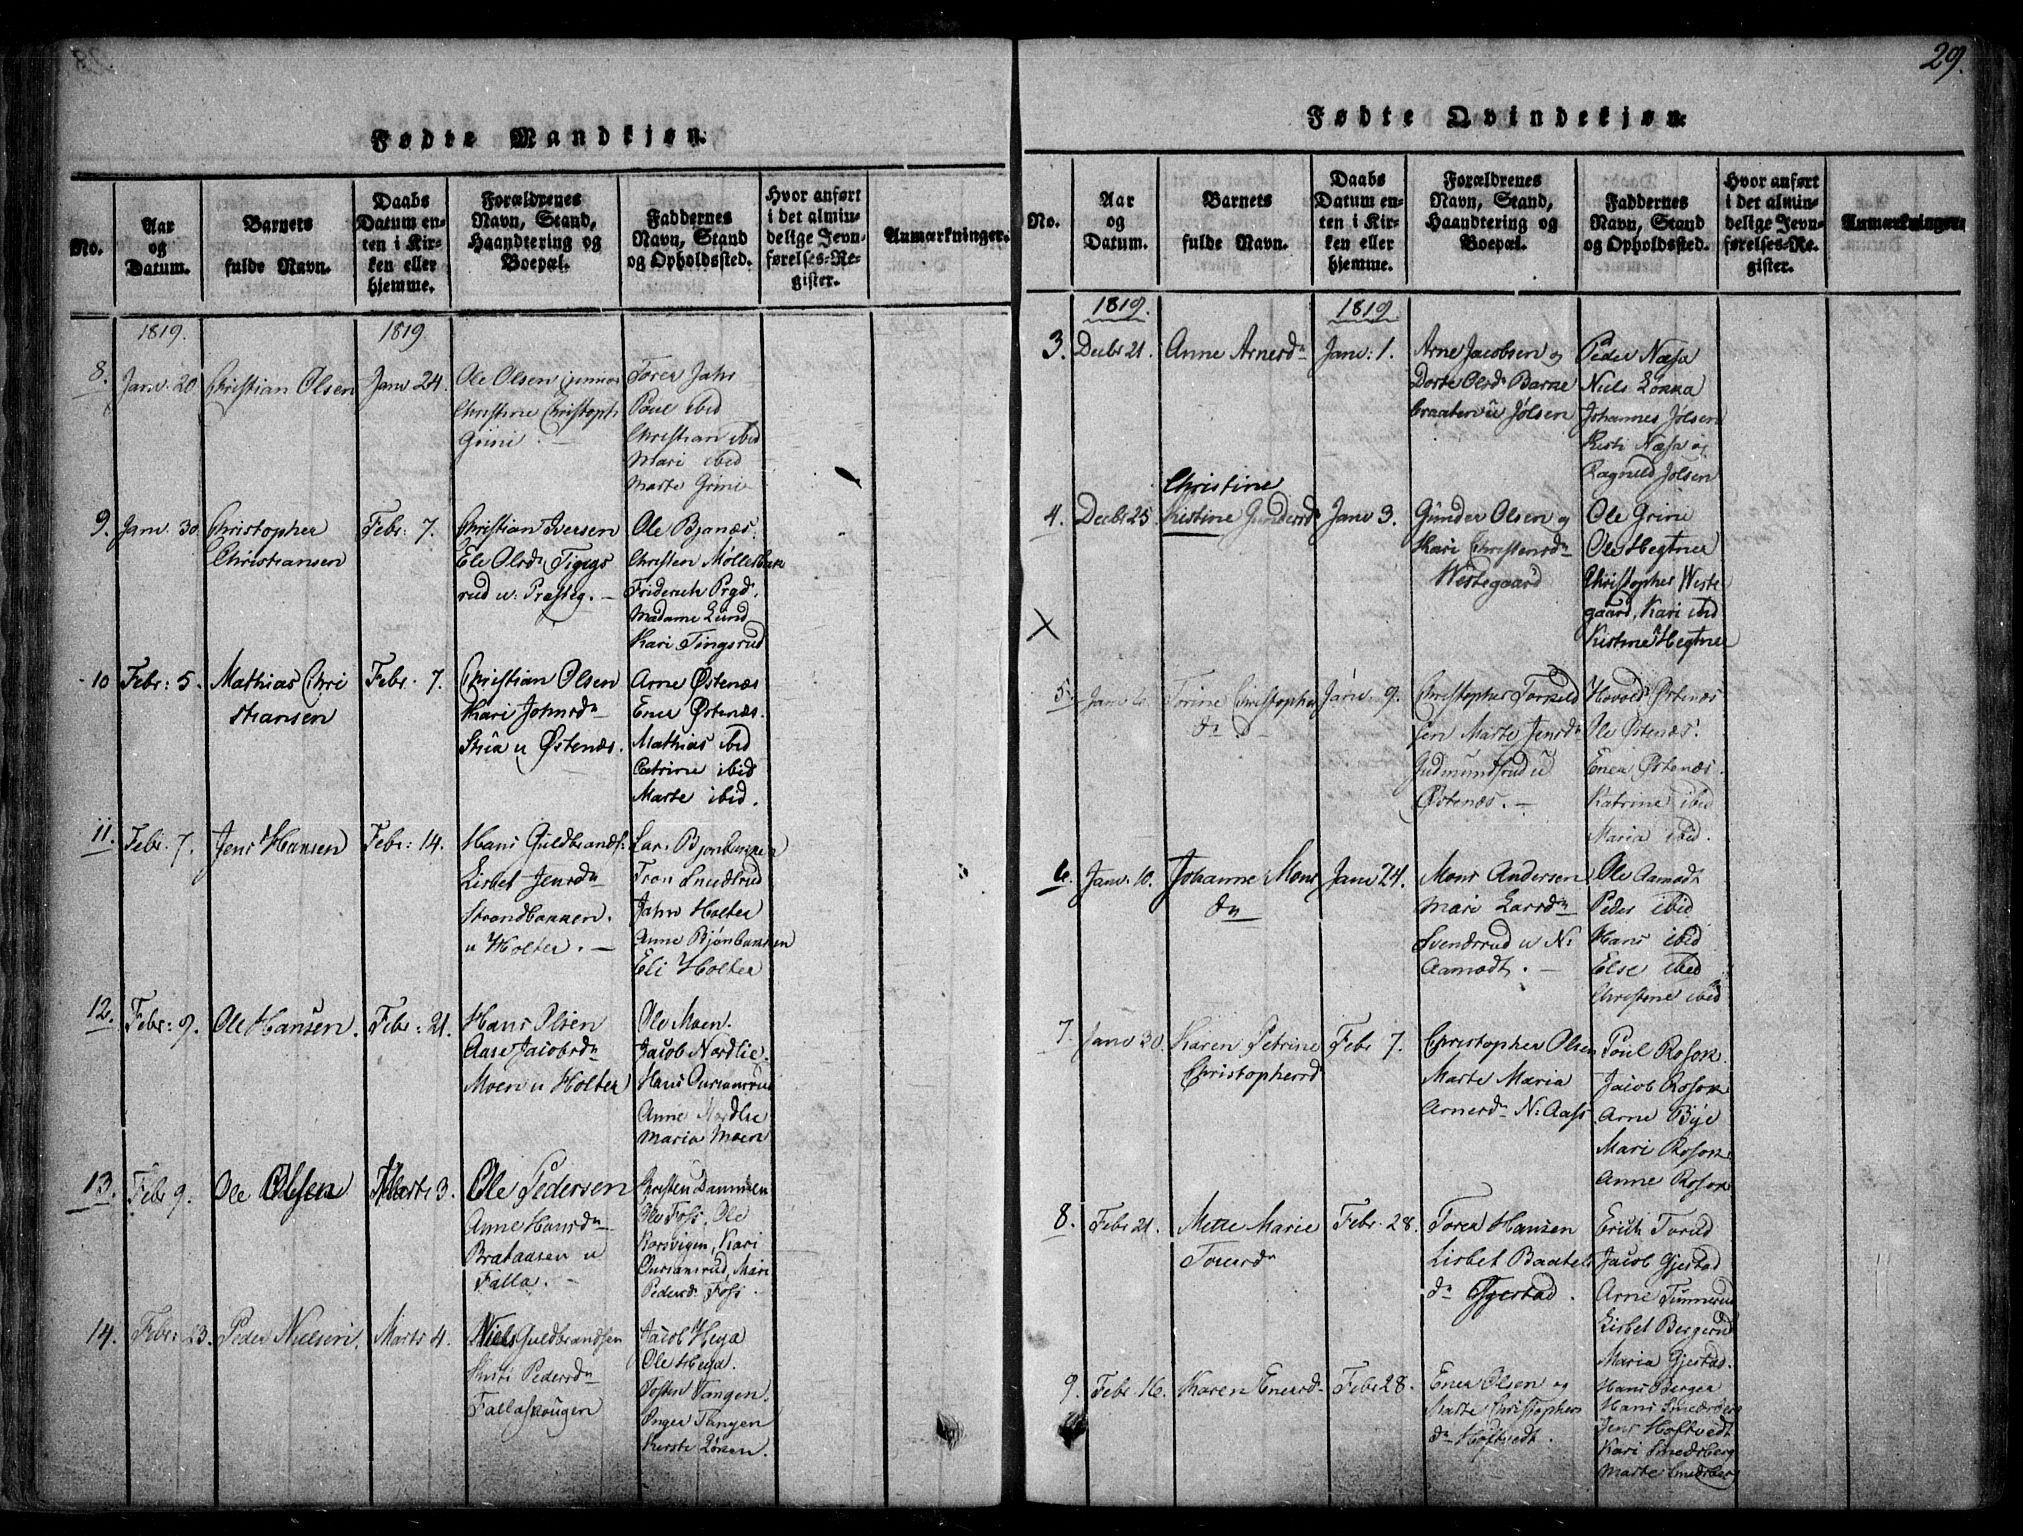 Fødte Mandkjøn.
No.
Aar
og
Datum.
Barnets
fulde Navn.
Daabs
Datum en-
ten i Kir-
ken eller
hjemme.
Forældrenes
Navn, Stand,
Haandtering og
Boepæl.
Faddernes
Navn, Stand
og Opholdssted.
Hvor anført
i det almin-
delige Jevn-
førelses-Re-
gister.
Anmærkninger.
1819.
1819
8.
Janv. 20
Christian Olsen
Janv 24.
Ole Olsen
Christine Christoph
Grini. —
Torer Jahr
Paul ibid
Christian ibid
Mari ibid
Marte Grini
9.
Janv. 30.
Christopher
Christiansen
Febr: 7.
Christian Iversen
Ele Olsdn
rud u: Præsteg. —
Ole Bjønæs.
Christen Møllerbak
Friderich Prgd.
Madame Lund
Kari Tingsrud
10
Febr: 5.
Mathias Chri
stiansen
Febr. 7.
Christian Olsen
Kari Johnsdn
Stua u Østenæs.
Arne Østenæs
Ener Østenæs.
Mathias ibid
Catrine ibid
Marte ibid.
11.
Febr. 7.
Jens Hansen
Febr: 14.
Hans Guldbrands:
Lisbet Jensdn
Strandbakken.
u Holter. —
Lars
Tron Snedsrud
Jahn Holter
Anne
Eli Holter
12.
Febr: 9.
Ole Hansen.
Febr: 21.
Hans Olsen
Aase Jacobsdn
Moen u Holter
Ole Moen.
Jacob Nordlie.
Hans Ouriansrud
Anne Nordlie
Maria Moen
13.
Febr 9.
Ole Olssen
Marts 3.
Ole Pedersen
Anne Hansdn
Brataasen u
Falla. —
Christen
Ole Foss, Ole
Korsvigen, Kari
Ouriansrud, Mari
Pedersd. Foss.
14.
Febr: 23.
Peder Nielsen.
Marts 4.
Niels Guldbrandsen
Kirsti Pedersdn
Fallaskougen
Jacob Heya
Ole Heya.
Tosten Tangen.
Inger Tangen
Kirste
29.
Fødte Qvindekjøn.
No.
Aar
og
Datum.
Barnets
fulde Navn.
Daabs
Datum en-
ten i Kir-
ken eller
hjemme.
Forældrenes
Navn, Stand,
Haandtering og
Boepæl.
Faddernes
Navn, Stand
og Opholdssted.
Hvor anført
i det almin-
delige Jevn-
førelses-Re-
gister.
Anmærkninger.
1819.
1819
3.
Decbr 21.
Anne Arnesdn
Janv: 1.
Arne Jacobsen og
Dorte Olsdn Barne
braaten u Jølsen
Peder Næsa
Niels Løkka
Johannes Jølsen
Kirsti Næsa og
Ragnild Jølsen
4.
Decbr 25
Christine
Kistine Gundersd
Janv 3.
Günder Olsen og
Kari Christensdn
Westegaard
Ole Grini
Ole Hegtner
Christopher Weste
gaard, Kari ibid
Kistine Hegtner
X
5.
Janv
Torine Christopher
dn
Janv. 9.
Christopher Torkild
sen Marte Jensdn
Gudmundsrud u
Østenæs. —
Hovold Østenæs
Ole Østenæs.
Ener Østenæs.
Katrine ibid
Maria ibid.
6.
Janv. 10.
Johanne Mons
dn
Janv 24.
Mons Andersen
Mari Larsdn
Svensrud u N:
Aamodt. —
Ole Aamodt
Peder ibid
Hans ibid
Else ibid
Christine ibid
7.
Janv 30.
Karen Petrine
Christophersd
Febr 7.
Christopher Olsen
Marte Maria
Arnesdn N: Aass
Poul Rosok.
Jacob Rosok
Arne Bye
Mari Rosok
Anne Rosok
8.
Febr 21.
Mette Marie
Torersdn
Febr. 28.
Torer Hansen
Lisbet Baatels
dn Gjestad.
Erich Torud
Jacob Gjestad
Arne Tünnerud
Lisbet Bergerud
Maria Gjestad.
9.
Febr 16.
Karen Enersd.
Febr 28.
Ener Olsen og
Marte Christophers
dn Hoftvedt.
Hans Berger
Hans
Jens Hoftvedt
Kari Smedsberg
Marte Smedsberg